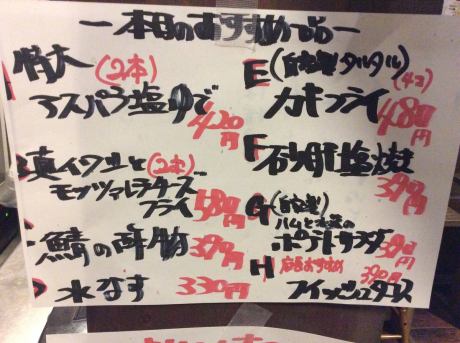 一本日のおすすめ一品一
特大(2本)
アスパラ塩ゆで
420円
真イワシと(2本)
モッツァレラチーズ
フライ 580円
鯖の酢物 390円
水なす 330円
E(自家製タルタル)
カキフライ(4コ)
480円
F石切肝塩焼
390円
G(自家製)
ハムと玉葱の
ポテトサラダ 390円
H店長おすすめ 390円
フィッシュタコス